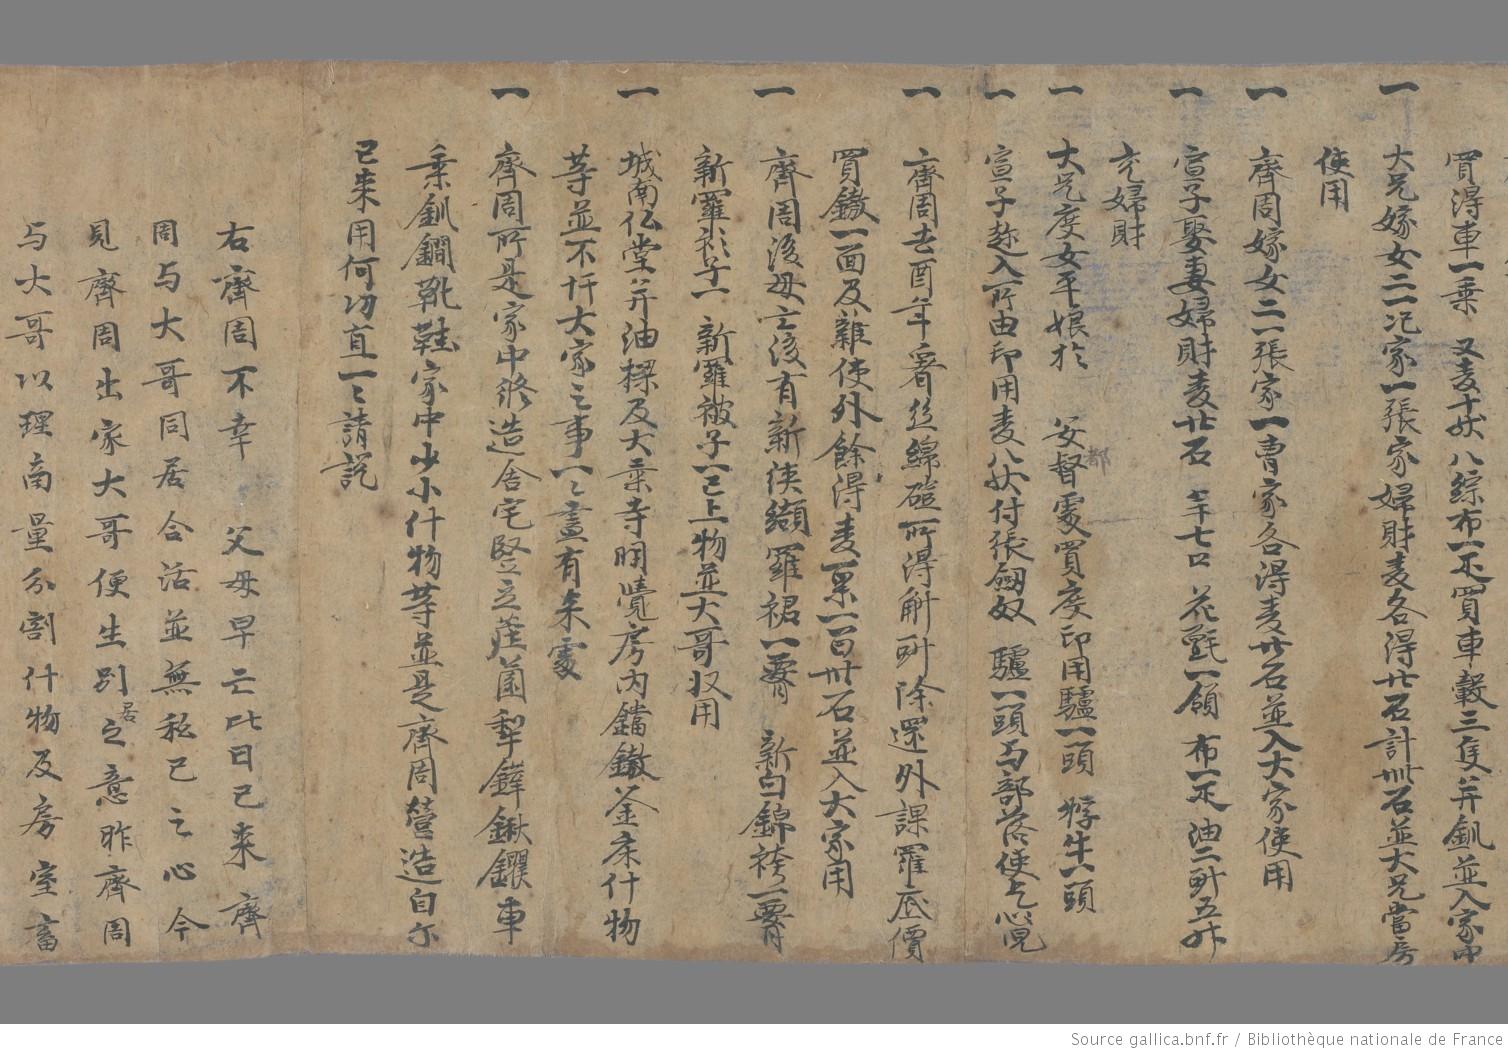 買得車一乘 又麦十馱八綜布一疋買車轂三隻并釧並入家中
一 大兄嫁女二一氾家一張家婦財麦各得廿石計卌石並大兄當房
使用
一 齊周嫁女二一張家一曹家各得麦廿石並入大家使用
一 宣子娶妻婦財麦廿石 羊七口 花氈一領 布一疋 油二㪷五升
充婦財
一 大兄度女平娘於 安都督處買度印用驢一頭 牸牛一頭
一 宣子趂入所由印用麦八馱付張剑奴 驢一頭与部落使乞心兒
一 齊周去酉年看丝綿磑所得斛㪷除還外課羅底價
買鏊一面及雜使外餘得麦一百卅石並入大家用
一 齊周後母亡後有新侠纈羅裙一腰 新白錦袴一腰
新羅衫子一 新羅被子一已上物並大哥收用
一 城南佛堂并油樑及大乘寺明覺房内鐺鏊釜床什物
等並不忓大家之事一一盡有来處
一 齊周所是家中修造舍宅竪立莊園犁鏵鍬钁車
乘釧鐧靴鞋家中少小什物等並是齊周營造自尔
已来用何功直一一請説
右齊周不幸 父母早亡比日已来齊
周与大哥同居合活並無私己之心今
見齊周出家大哥便生別居之意昨齊周
与大哥以理商量分割什物及房室畜
Source gallica.bnf.fr / Bibliothèque nationale de France